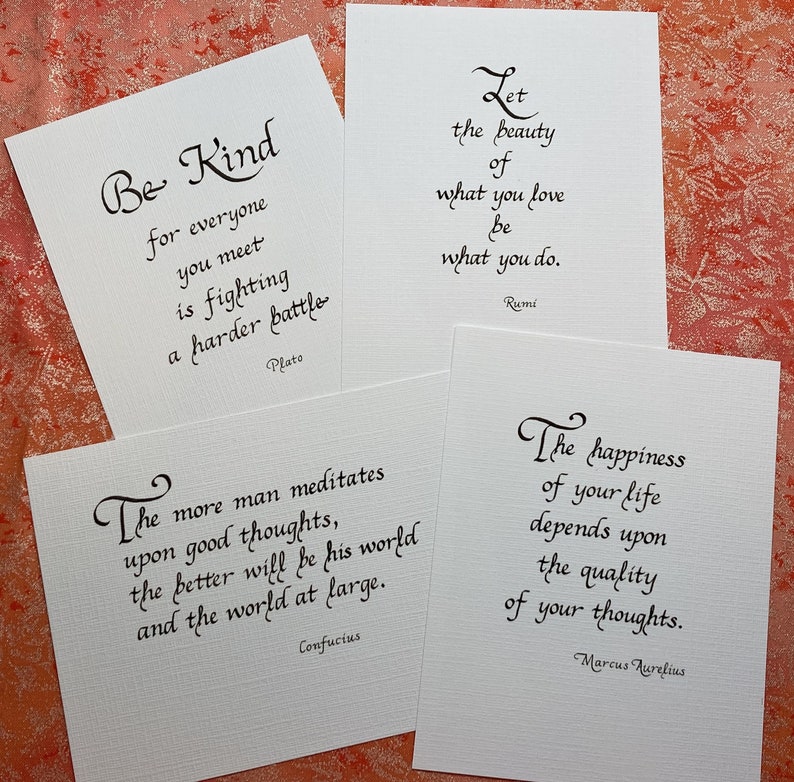 Be Kind
for everyone
you meet
is fighting
a harder battle
Plato
Let
the beauty
of
what you love
be
what you do.
Rumi
The more man meditates
upon good thoughts,
the better will be his world
and the world at large.
Confucius
The happiness
of your life
depends upon
the quality
of your thoughts.
Marcus Aurelius